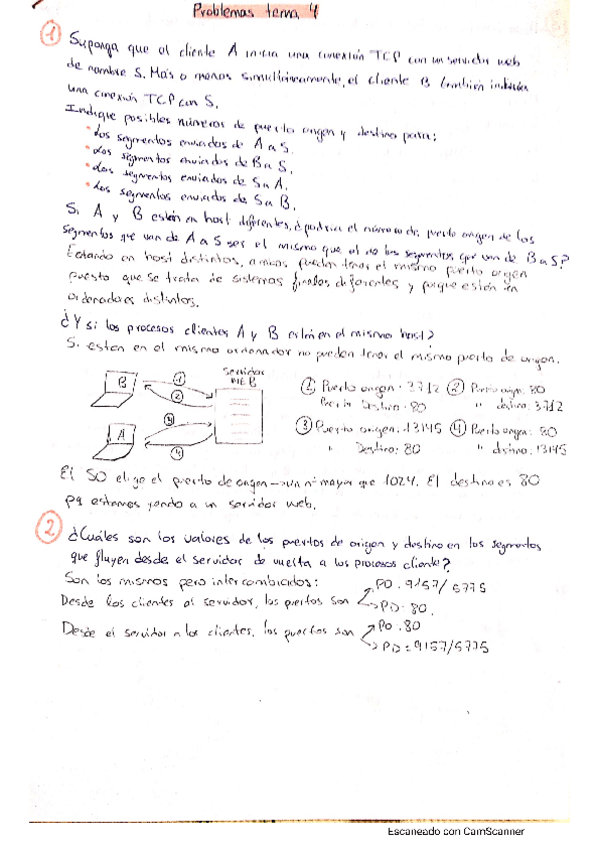 Problemas tema 4
① Suponga que el cliente A inicia una conexión TCP con un servidor web
de nombre S. Más o menos simultáneamente, el cliente B también
una conexión TCP con S.
Indique posibles números de puerto origen y destino para:
• Los segmentos enviados de A a S.
• Los segmentos enviados de B a S.
• Los segmentos enviados de S a A.
• Los segmentos enviados de S a B.
Si A y B están en host diferentes, ¿podría el número de puerto origen de los
segmentos que van de A a S ser el mismo que el de los segmentos que van de B a S?
Estando en host distintos, ambos pueden tener el mismo puerto origen
puesto que se trata de sistemas finales diferentes y porque están en
ordenadores distintos.
¿Y si los procesos clientes A y B están en el mismo host?
Si están en el mismo ordenador no pueden tener el mismo puerto de origen.
B
①
②
A
③
④
Servidor
WEB
① Puerto origen: 3712
Puerto Destino: 80
② Puerto origen: 80
" destino: 3712
③ Puerto origen: 13145
" Destino: 80
④ Puerto origen: 80
" destino: 13145
El SO elige el puerto de origen → un nº mayor que 1024. El destino es 80
pq estamos yendo a un servidor web.
② ¿Cuáles son los valores de los puertos de origen y destino en los segmentos
que fluyen desde el servidor de vuelta a los procesos cliente?
Son los mismos pero intercambiados:
Desde los clientes al servidor, los puertos son
PO: 9157/5775
PD: 80.
Desde el servidor a los clientes, los puertos son
PO: 80
PD: 9157/5775
Escaneado con CamScanner